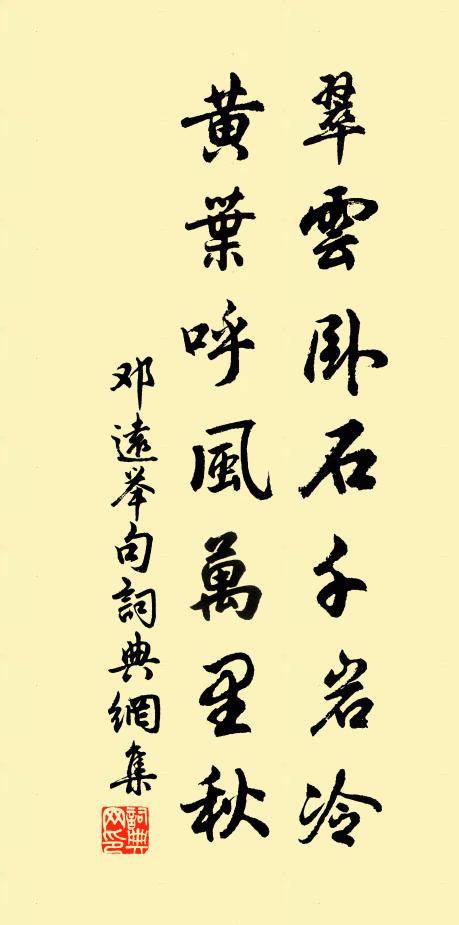 翠雲卧石千岩冷
黄葉呼風萬里秋
邓遠举句詞典網集
詞典网印